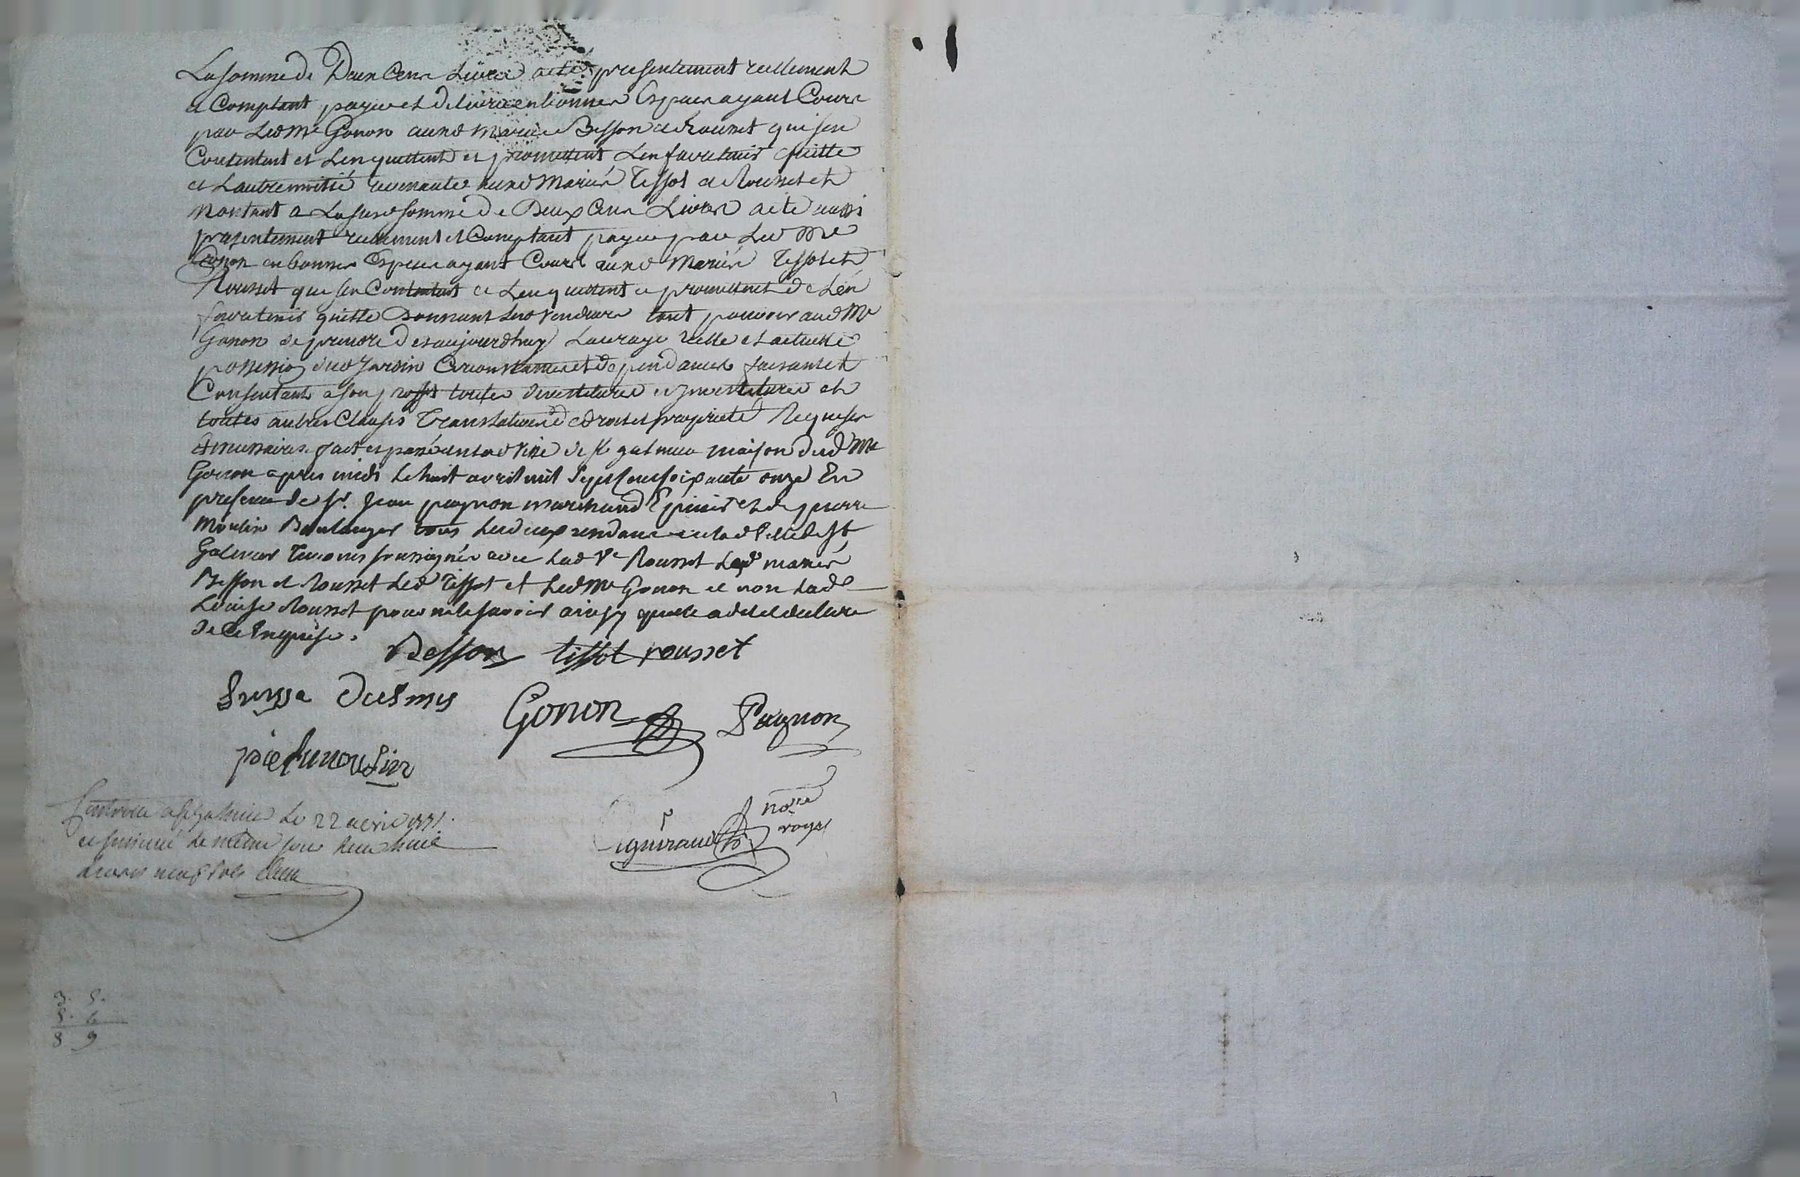 La somme de Deux Cens Livres a eté presentement reellement
et Comptant payée et delivrée en bonnes Especes ayant Cours
par Led Me Gonon aux d mariés Besson et Rousset qui sen
Contentent et Len quittent et promettent Len faire tenir quitte
et Lautre moitié revenante aux d Mariés Tissot et Rousset et
Montant a La susd somme de Deux Cens Livres a eté aussi
presentement reellement et Comptant payée par Led Me
Gonon en bonnes Especes ayant Cours aux d Mariés Tissot et
Rousset qui sen Contentent et Len quittent et promettent de Len
faire tenir quitte Donnant Lesd Vendeurs tout pouvoir aud Me
Gonon de prendre des aujourdhuy La vraye reelle et actuelle
possession dud Jardin Circonstances et dependances faisant et
Consentant a son profit toutes devestitures et investitures et
toutes autres Clauses Translatives de droits et propriété Requises
et necessaires. fait et passé en lad Ville de St galmier maison dud Me
Gonon apres midi Le huit avril mil Sept Cens soixante onze En
presence de Sr. Jean pagnon marchand Epicier et de pierre
Moulin Boulanger tous Les deux en lad Ville de St
Galmier Temoins soussignés avec Lad Ve Rousset Lesd mariés
Besson et Rousset Led Tissot et Led Me Gonon et non Lad
Louise Rousset pour ne le savoir ainsy quelle a dit et declaré
de Ce Enquise.
Besson tissot rousset
Gonon Pagnon
pierre moulin
nore
royal
Controllé a St Galmier Le 22 avril 1771.
3. 5.
5. 4
8 9